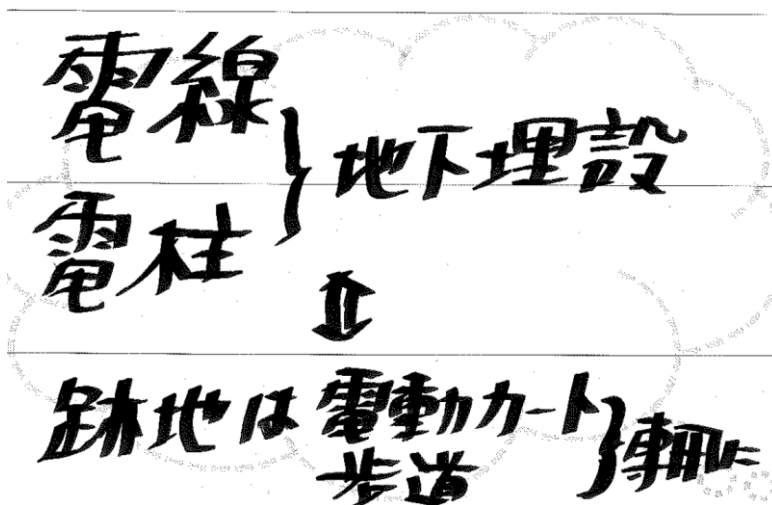 電線
電柱
}地下埋設
⇕
跡地は電動カート
歩道
}専用に